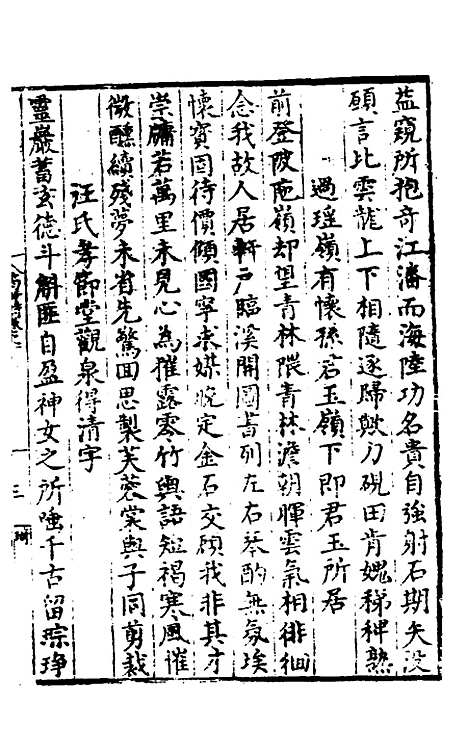 益窺所抱奇江瀋而海陸功名貴自強射石期矢沒
願言比雲龍上下相隨逐歸歟力硯田肯媿稊稗熟
過瑾嶺有懷孫君玉嶺下即君玉所居
前登陂陁嶺却望青林隈青林澹朝暉雲氣相徘徊
念我故人居軒戶臨溪開圖書列左右琴酌無氛埃
懷寶固待價傾國寧求媒晚定金石交顧我非其才
崇牗若萬里未見心為摧露零竹輿語短褐寒風催
微醺續殘夢未省先驚回思製芙蓉裳與子同剪裁
汪氏孝節堂觀泉得清字
靈嚴蓄玄德斗斛匪自盈神女之所唾千古留琮琤
三